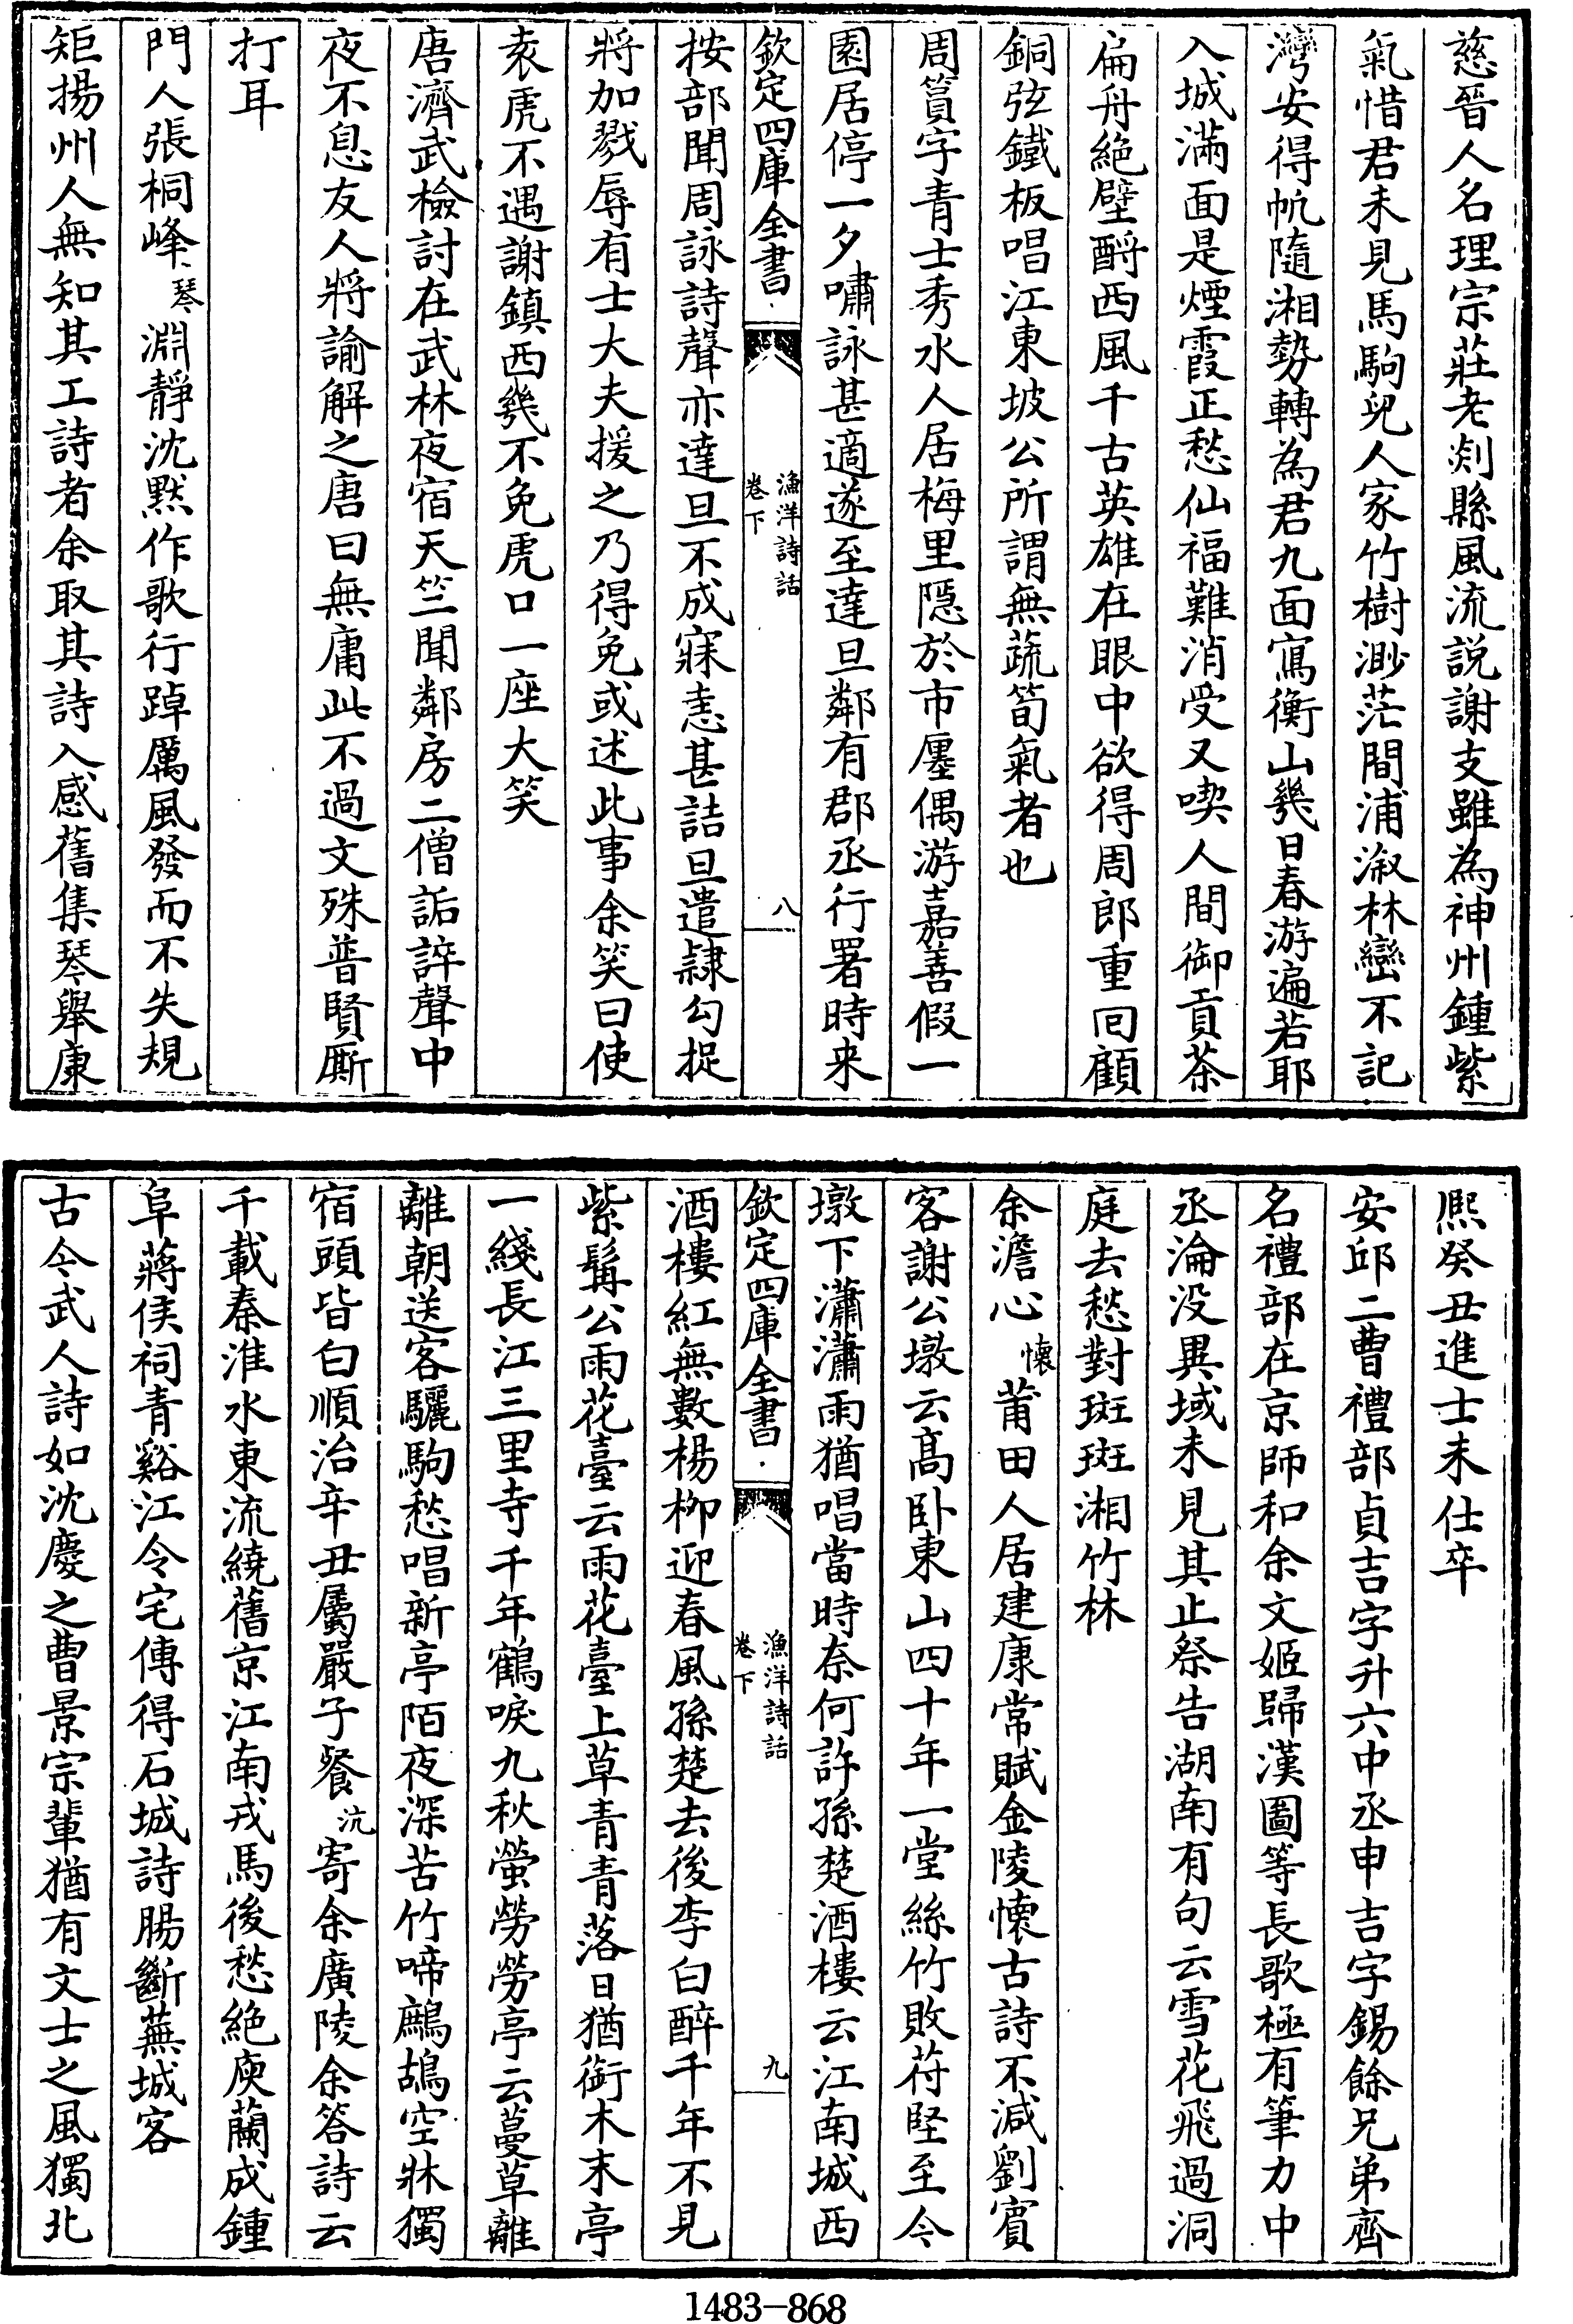 慈晉人名理宗莊老剡縣風流説謝支雖為神州鍾紫
氣惜君未見馬駒兒人家竹樹渺茫間浦溆林巒不記
灣安得帆隨湘勢轉為君九面寫衡山幾日春游遍若耶
入城滿面是煙霞正愁仙福難消受又喫人間御貢茶
扁舟絶壁酹西風千古英雄在眼中欲得周郎重回顧
銅弦鐵板唱江東坡公所謂無蔬筍氣者也
周篔字青士秀水人居梅里隠於市廛偶游嘉善假一
園居停一夕嘯詠甚適遂至達旦鄰有郡丞行署時来
欽定四庫全書
漁洋詩話
卷下
八
按部聞周詠詩聲亦達旦不成寐恚甚詰旦遣隸勾捉
將加戮辱有士大夫援之乃得免或述此事余笑曰使
袁虎不遇謝鎮西幾不免虎口一座大笑
唐濟武檢討在武林夜宿天竺聞鄰房二僧詬誶聲中
夜不息友人將諭解之唐曰無庸此不過文殊普賢厮
打耳
門人張桐峰琴淵靜沈黙作歌行踔厲風發而不失規
矩揚州人無知其工詩者余取其詩入感舊集琴舉康
熙癸丑進士未仕卒
安邱二曹禮部貞吉字升六中丞申吉字錫餘兄弟齊
名禮部在京師和余文姬歸漢圖等長歌極有筆力中
丞淪没異域未見其止祭告湖南有句云雪花飛過洞
庭去愁對斑斑湘竹林
余澹心懷莆田人居建康常賦金陵懷古詩不減劉賓
客謝公墩云髙卧東山四十年一堂絲竹敗苻堅至今
墩下瀟瀟雨猶唱當時奈何許孫楚酒樓云江南城西
欽定四庫全書
漁洋詩話
卷下
九
酒樓紅無數楊栁迎春風孫楚去後李白醉千年不見
紫髯公雨花臺云雨花臺上草青青落日猶銜木末亭
一綫長江三里寺千年鶴唳九秋螢勞勞亭云蔓草離
離朝送客驪駒愁唱新亭陌夜深苦竹啼鷓鴣空牀獨
宿頭皆白順治辛丑屬嚴子餐沆寄余廣陵余答詩云
千載秦淮水東流繞舊京江南戎馬後愁絶庾蘭成鍾
阜蔣侯祠青谿江令宅傳得石城詩腸斷蕪城客
古今武人詩如沈慶之曹景宗輩猶有文士之風獨北
1483-868